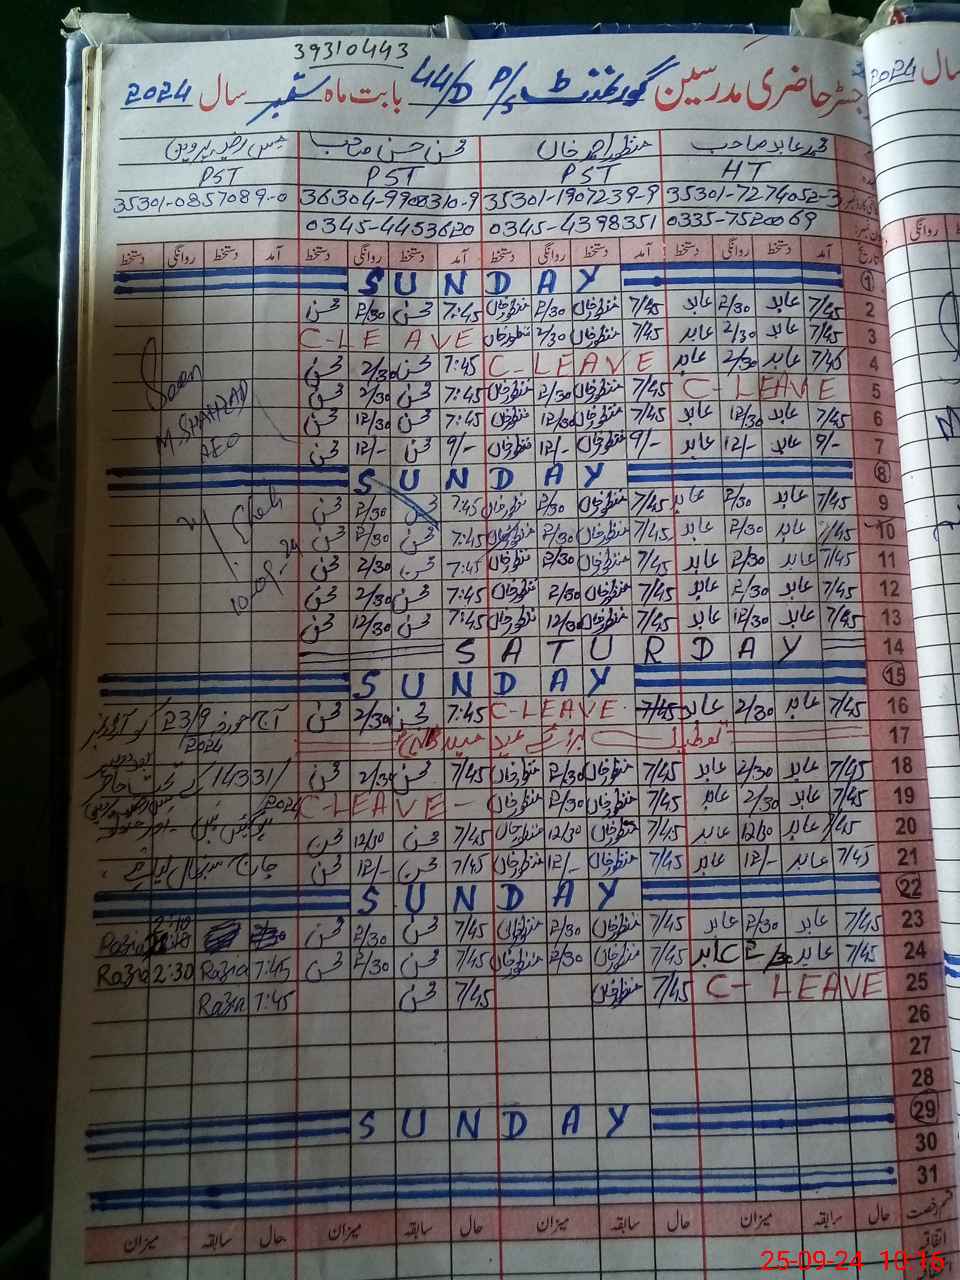 39310443
رجسٹر حاضری مدرسین گورنمنٹ P/S 44/D بابت ماہ ستمبر سال 2024
محمد عابد صاحب منظور احمد خاں محسن حسن صاحب مس رضیہ پروین
HT PST PST PST
35301-7274052-3 35301-1907239-9 36304-9908310-9 35301-0857089-0
0335-7520069 0345-4398351 0345-4453620
تاریخ آمد دستخط روانگی دستخط آمد دستخط روانگی دستخط آمد دستخط روانگی دستخط آمد دستخط روانگی دستخط
1 SUNDAY
2 7/45 عابد 2/30 عابد 7/45 منظور خاں 2/30 منظور خاں 7:45 محسن 2/30 محسن
3 7/45 عابد 2/30 عابد 7/45 منظور خاں 2/30 منظور خاں C-LEAVE
4 7/45 عابد 2/30 عابد C-LEAVE 7:45 محسن 2/30 محسن
5 C-LEAVE 7/45 منظور خاں 2/30 منظور خاں 7:45 محسن 2/30 محسن
6 7/45 عابد 12/30 عابد 7/45 منظور خاں 12/30 منظور خاں 7:45 محسن 12/30 محسن
7 9/- عابد 12/- عابد 9/- منظور خاں 12/- منظور خاں 9/- محسن 12/- محسن
Seen
M.SHAHZAD
AEO
8 SUNDAY
9 7/45 عابد 2/30 عابد 7/45 منظور خاں 2/30 منظور خاں 7:45 محسن 2/30 محسن
10 7/45 عابد 2/30 عابد 7/45 منظور خاں 2/30 منظور خاں 7:45 محسن 2/30 محسن
11 7/45 عابد 2/30 عابد 7/45 منظور خاں 2/30 منظور خاں 7:45 محسن 2/30 محسن
12 7/45 عابد 2/30 عابد 7/45 منظور خاں 2/30 منظور خاں 7:45 محسن 2/30 محسن
13 7/45 عابد 12/30 عابد 7/45 منظور خاں 12/30 منظور خاں 7:45 محسن 12/30 محسن
14 SATURDAY
15 SUNDAY
16 7/45 عابد 2/30 عابد 7/45 C-LEAVE 7:45 محسن 2/30 محسن
آج مورخہ 23/9/2024 کو
17 تعطیل عید میلاد
18 7/45 عابد 2/30 عابد 7/45 منظور خاں 2/30 منظور خاں 7/45 محسن 2/30 محسن
14331/2024
19 7/45 عابد 2/30 عابد 7/45 منظور خاں 2/30 منظور خاں C-LEAVE
20 7/45 عابد 12/30 عابد 7/45 منظور خاں 12/30 منظور خاں 7/45 محسن 12/30 محسن
21 7/45 عابد 12/- عابد 7/45 منظور خاں 12/- منظور خاں 7/45 محسن 12/- محسن
22 SUNDAY
23 7/45 عابد 2/30 عابد 7/45 منظور خاں 2/30 منظور خاں 7/45 محسن 2/30 محسن Razia
24 7/45 عابد 2/30 عابد 7/45 منظور خاں 2/30 منظور خاں 7/45 محسن 2/30 محسن 7:45 Razia 2:30 Razia
25 C-LEAVE 7/45 منظور خاں 7/45 محسن 7:45 Razia
26
27
28
29 SUNDAY
30
31
قسم رخصت حال سابقہ میزان حال سابقہ میزان حال سابقہ میزان حال سابقہ میزان
اتفاقی
سال
2024
روانگی
25-09-24 10:16